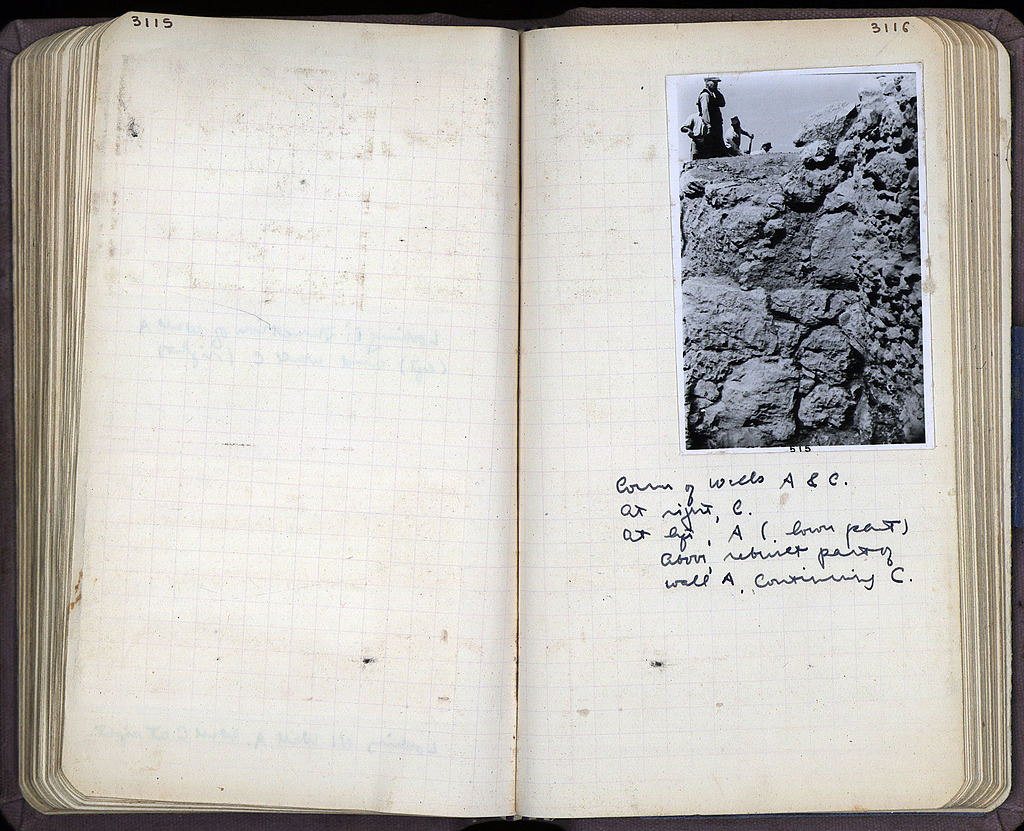 3115
3116
515
Corner of walls A & C.
At right, C.
At left, A (lower part)
Above, rebuilt part of
wall A, continuing C.